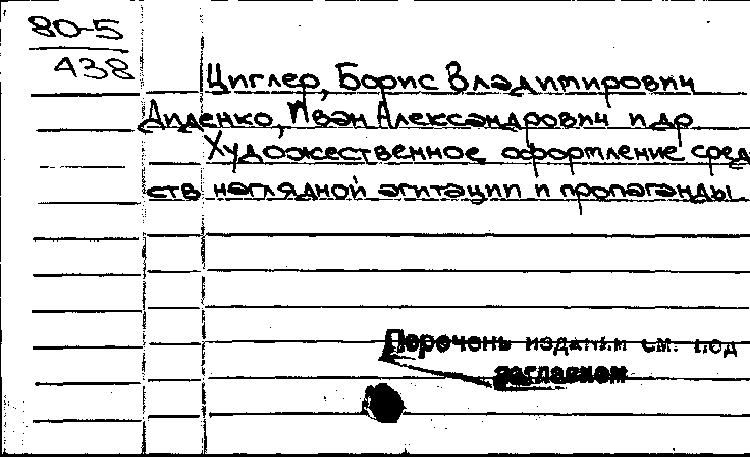 80-5
438
Циглер, Борис Владимирович
Диденко, Иван Александрович и др
Художественное оформление сред
ств наглядной агитации и пропаганды
Перечень изданий см. под
заглавием